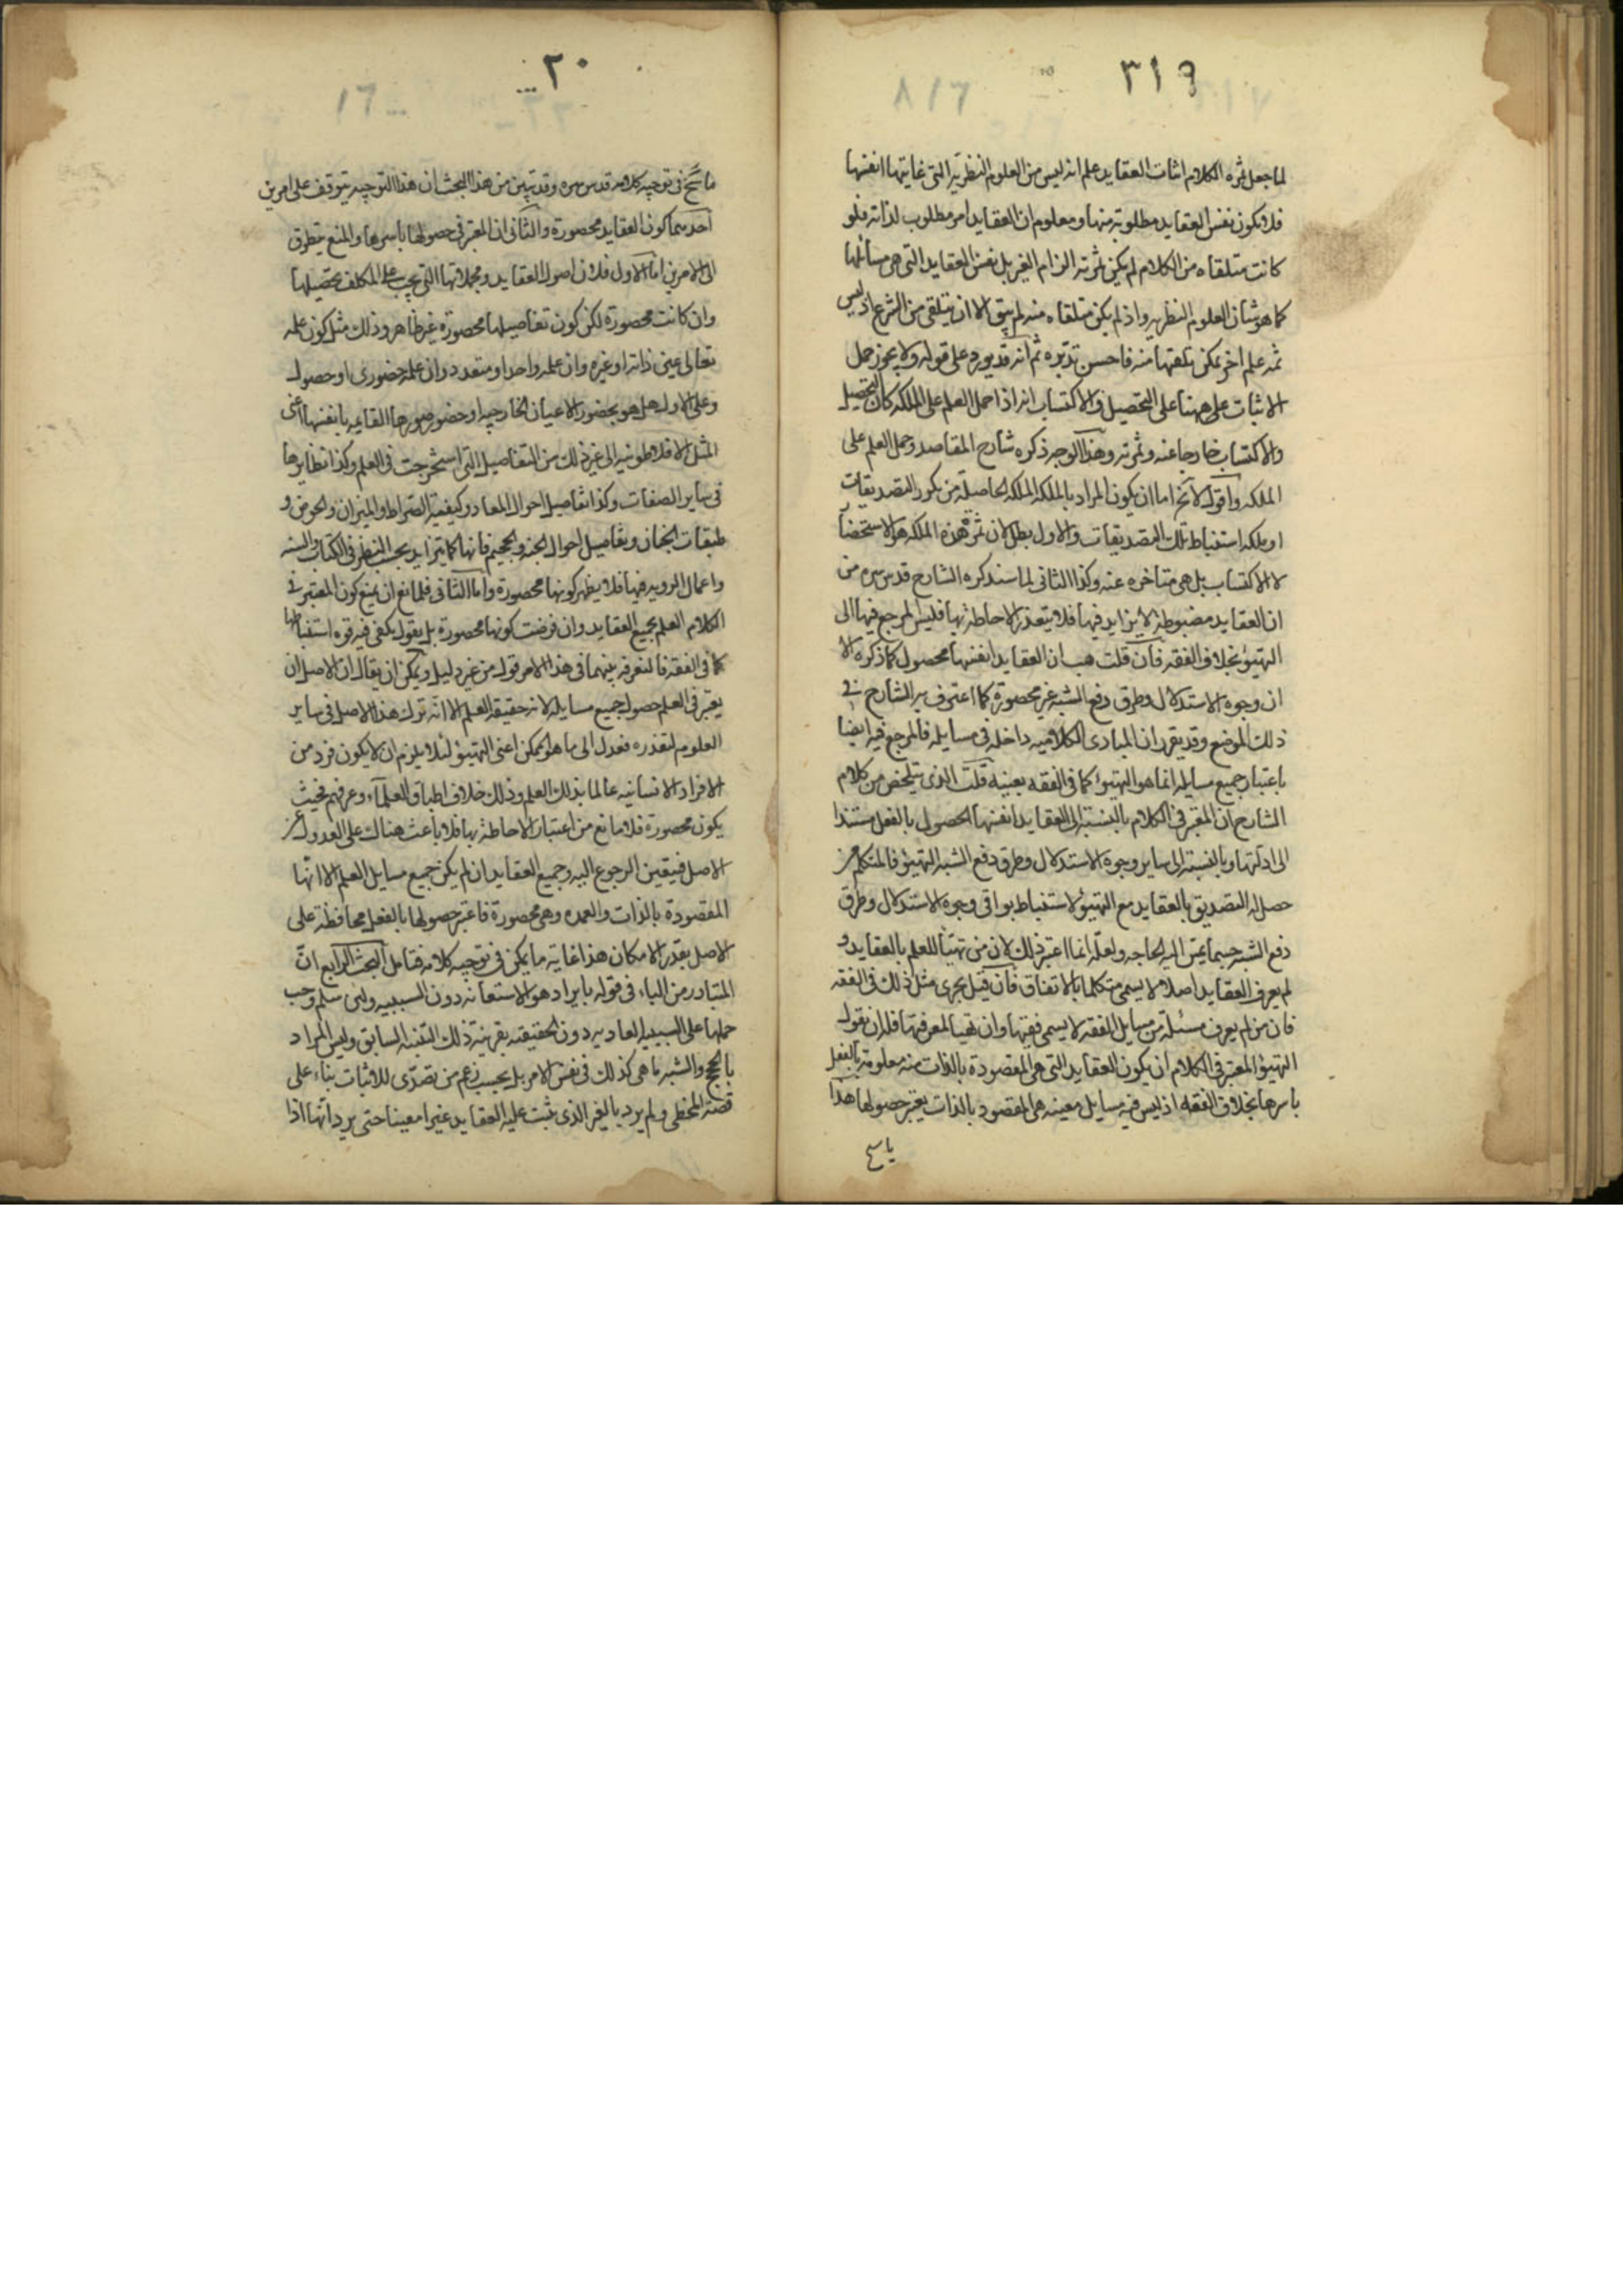 ٣١٩
لما جعل ثمره الكلام اثبات العقايد علم انه ليس من العلوم النظريه التى غايتها انفسها
فلا يكون نفس العقايد مطلوبة منها ومعلوم ان العقايد امر مطلوب لذاته فلو
كانت متلقاه من الكلام لم يكن ثمرته الزام الغير بل نفس العقايد التى هى مسائلها
كما هو شان العلوم النظريه واذ لم يكن متلقاه منه لم يبق الا ان يتلقى من الشرع اذ ليس
ثمه علم اخر يمكن تلقيها منه فاحسن تدبره ثم انه قد يورد على قوله ولا يجوز حمل
الاثبات على ههنا على التحصيل والاكتساب انه اذا حمل العلم على الملكه كان التحصيل
والاكتساب خارجا عنه وثمرته وهذا الوجه ذكره شارح المقاصد وحمل العلم على
الملكه واقول لا يخ اما ان يكون المراد بالملكه الملكه الحاصله من تكرر التصديقات
او ملكه استنباط تلك التصديقات والاول بطلان ثمرة هذه الملكه هو الاستحضا
لا الاكتساب بل هى متاخره عنه وكذا الثانى لما سنذكره الشارح قدس سره من
ان العقايد مضبوطة لا يزايد فيها فلا يتعذر الاحاطة بها فليس المرجع فيها الى
التهيؤ بخلاف الفقه فان قلت هب ان العقايد انفسها محصول كما ذكره الا
ان وجوه الاستدلال وطرق دفع الشبه غير محصورة كما اعترف به الشارح فى
ذلك الموضع وقد يقرر ان المبادى الكلاميه داخله فى مسايله فالمرجع فيه ايضا
باعتبار جميع مسايله انما هو التهيؤ كما فى الفقه بعينه قلت الذى يتلخص من كلام
الشارح ان المعتبر فى الكلام بالنسبة الى العقايد انفسها الحصول بالفعل مستندا
الى ادلتها وبالنسبة الى ساير وجوه الاستدلال وطرق دفع الشبه التهيؤ فالمتكلم من
حصل له التصديق بالعقايد مع التهيؤ لاستنباط بواقى وجوه الاستدلال وطرق
دفع الشبه حسبما يمس اليه الحاجه ولعله انما اعتبر ذلك لان من تهيأ للعلم بالعقايد و
لم يعرف العقايد اصلا لا يسمى متكلما بالاتفاق فان قيل يجرى مثل ذلك فى الفقه
فان من لم يعرف مسئلة من مسايل الفقه لا يسمى فقيها وان تهيا لمعرفتها فلنا ان نقول
التهيؤ المعتبر فى الكلام ان يكون العقايد التى هى المقصودة بالذات منه معلومة بالفعل
باسرها بخلاف الفقه اذ ليس فيه مسايل معينه هى المقصود بالذات يعتبر حصولها هذا
٢٠
ما سنح فى توجيه كلامه قدس سره وقد تبين من هذا البحث ان هذا التوجيه يتوقف على امرين
احدهما كون العقايد محصورة والثانى ان المعتبر فى حصولها باسرها والمنع يتطرق
الى الامرين اما الاول فلان اصول العقايد ومجملاتها التى يجب على المكلف تحصيلها
وان كانت محصورة لكن كون تفاصيلها محصورة غير ظاهر وذلك مثل كون علمه
تعالى عين ذاته او غيره وان علمه واحد او متعدد وان علمه حضورى او حصولى
وعلى الاول هل هو بحضور الاعيان الخارجيه او حضور صورها القايمه بانفسها اعنى
المثل الافلاطونيه الى غير ذلك من التفاصيل التى استخرجت فى العلم وكذا نظايرها
فى ساير الصفات وكذا تفاصيل احوال المعاد وكيفية الصراط والميزان والحوض و
طبقات الجنان وتفاصيل احوال الجنه والجحيم فانها كما تزايد بحسب النظر فى الكتاب والسنه
واعمال الرويه فيها فلا يظهر كونها محصورة واما الثانى فلمانع ان يمنع كون المعتبر فى
الكلام العلم بجميع العقايد وان فرضت كونها محصورة بل يقول يكفى فيه قوه استنباطها
كما فى الفقه فالتفرقه بينهما فى هذا الامر قول من غير دليل ويمكن ان يقال ان الاصل ان
يعتبر فى العلم حصول جميع مسايله لانه حقيقة العلم الا انه ترك هذا الاصل فى ساير
العلوم لتعذره فعدل الى ما هو ممكن اعنى التهيؤ لئلا يلزم ان لا يكون فرد من
الافراد الانسانيه عالما بذلك العلم وذلك خلاف اطباق العلماء وعرفهم فحيث
يكون محصورة فلا مانع من اعتبار الاحاطة بها فلا باعث هناك على العدول عن
الاصل فيتعين الرجوع اليه وجميع العقايد ان لم يكن جميع مسايل العلم الا انها
المقصودة بالذات والعمده وهى محصورة فاعتبر حصولها بالفعل محافظة على
الاصل بقدر الامكان هذا غاية ما يمكن فى توجيه كلامه فتامل البحث الرابع ان
المتبادر من الباء فى قوله بايراد هو الاستعانه دون السببيه ولئن سلم وجب
حملها على السببيه العاديه دون الحقيقيه بقرينة ذلك التنبيه السابق وليس المراد
بالحجج والشبه ما هى كذلك فى نفس الامر بل بحسب زعم من تصدى للاثبات بناء على
قصة المخطى ولم يرد بالغير الذى يثبت عليه العقايد غيرا معينا حتى يرد انها اذا